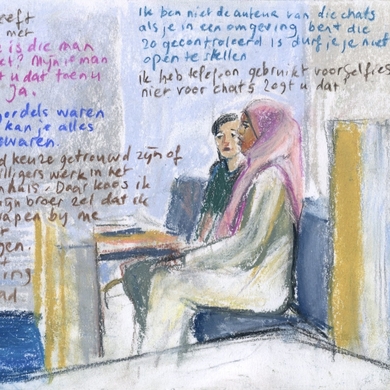 eeft
met
e is die man
et? Mijn e man
t u dat toen u
Ja.
gordels waren
kan je alles
swaren.
d keuze getrouwd zijn of
lligers werk in het
nhuis. Daar koos ik
ijn broer zei dat ik
wapen by me
r
gen.
t
ing
ad
Ik ben niet de auteur van die chats
als je in een omgeving bent die
zo gecontroleerd is durf je je niet
open te stellen
ik heb telefoon gebruikt voor selfies
niet voor chats zegt u dat